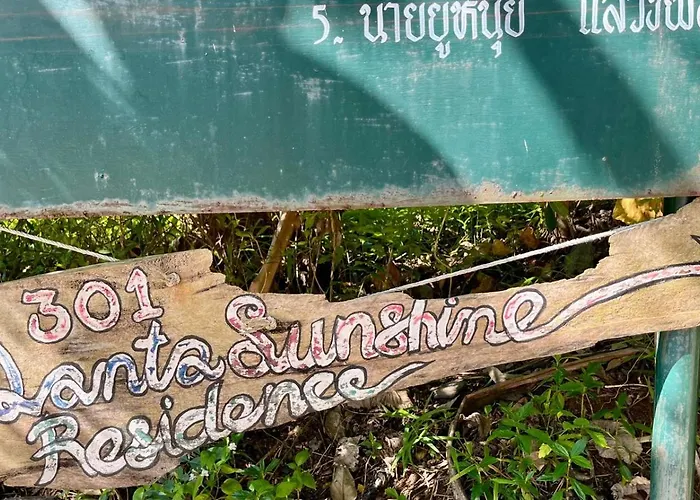 5. นายยูหนุ่ย
301
Lanta Sunshine
Residence